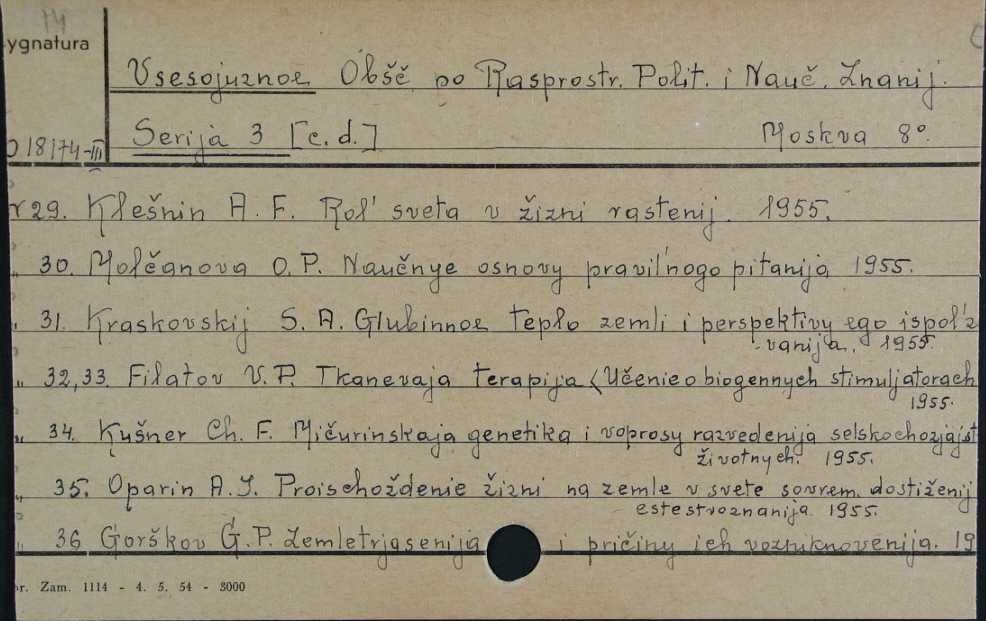 14
ygnatura
Vsesojuznoe Obšč po Rasprostr. Polit. i Nauč. Znanij.
18174-III
Serija 3 [c.d.] Moskva 8°
r 29. Klešnin A. F. Rol' sveta v žizni rastenij. 1955.
„ 30. Molčanova O. P. Naučnye osnovy pravil'nogo pitanija 1955.
„ 31. Kraskovskij S. A. Glubinnoe teplo zemli i perspektivy ego ispol'z
-vanija. 1955.
„ 32,33. Filatov V. P. Tkanevaja terapija (Učenie o biogennych stimuljatorach
1955.
„ 34. Kušner Ch. F. Mičurinskaja genetika i voprosy razvedenija selskochozjajst
životnych. 1955.
„ 35. Oparin A. I. Proischoždenie žizni na zemle v svete sovrem. dostiženij
estestvoznanija 1955.
„ 36 Gorškov G. P. Zemletrjasenija i pričiny ich vozniknovenija. 19
r. Zam. 1114 - 4. 5. 54 - 3000